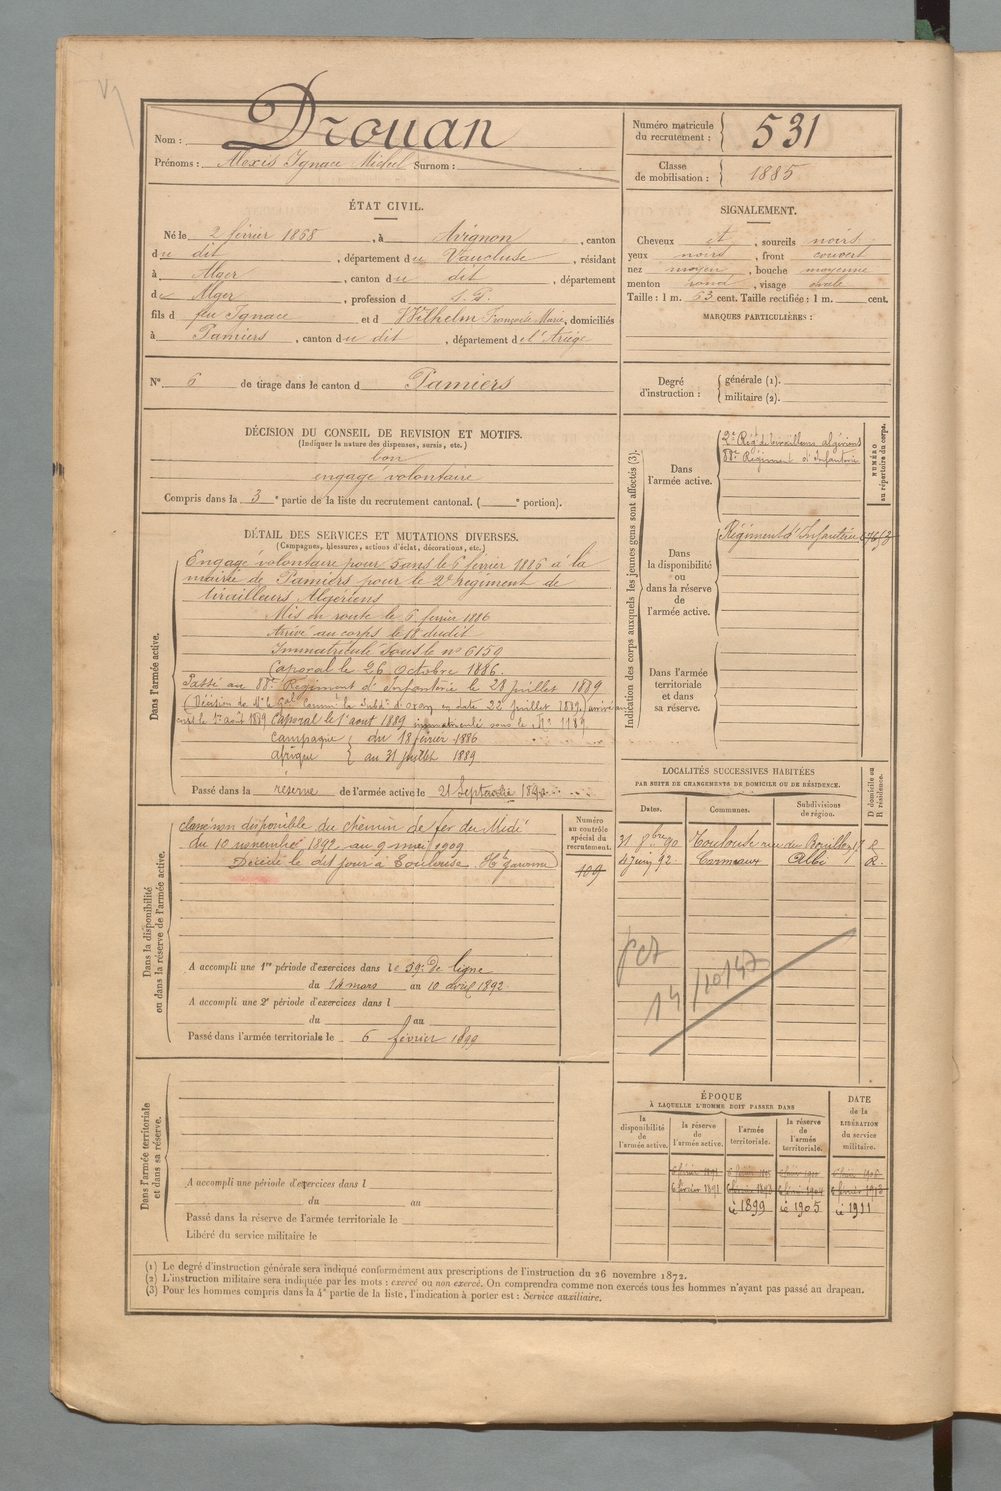 Nom : Drouan
Prénoms : Alexis Ignace Michel Surnom :
Numéro matricule du recrutement : 531
Classe de mobilisation : 1885
ÉTAT CIVIL.
Né le 2 février 1868, à Avignon, canton
du dit, département du Vaucluse, résidant
à Alger, canton du dit, département
de Alger, profession d S. P.
fils d feu Ignace et d Wilhelm Françoise Marie, domiciliés
à Pamiers, canton du dit, département de l'Ariège
SIGNALEMENT.
Cheveux et, sourcils noirs
yeux noirs, front couvert
nez moyen, bouche moyenne
menton rond, visage ovale
Taille : 1 m. 53 cent. Taille rectifiée : 1 m. cent.
MARQUES PARTICULIÈRES :
N° 6 de tirage dans le canton d Pamiers
Degré d'instruction :
générale (1).
militaire (2).
DÉCISION DU CONSEIL DE REVISION ET MOTIFS.
(Indiquer la nature des dispenses, sursis, etc.)
bon
engagé volontaire
Compris dans la 3e partie de la liste du recrutement cantonal. ( e portion).
Indication des corps auxquels les jeunes gens sont affectés (3).
NUMÉRO au répertoire du corps.
Dans l'armée active.
2e Régt de tirailleurs algériens
88e Régiment d'Infanterie
Dans la disponibilité ou dans la réserve de l'armée active.
Régiment d'Infanterie
Dans l'armée territoriale et dans sa réserve.
DÉTAIL DES SERVICES ET MUTATIONS DIVERSES.
(Campagnes, blessures, actions d'éclat, décorations, etc.)
Dans l'armée active.
Engagé volontaire pour 5 ans le 6 février 1886 à la
mairie de Pamiers pour le 2e régiment de
tirailleurs Algériens
Mis en route le 6 février 1886
Arrivé au corps le 18 dudit
Immatriculé sous le no 6159
Caporal le 26 Octobre 1886.
Passé au 88e Régiment d'Infanterie le 28 juillet 1889
(Décision de Mr le Gal Commt la Subdon d'Oran en date 22 juillet 1889) arrivé au
corps le 1er août 1889 Caporal le 1er août 1889 immatriculé sous le No 1189
Campagne du 18 février 1886
Afrique au 31 juillet 1889
Passé dans la réserve de l'armée active le 21 Septembre 1890
Dans la disponibilité ou dans la réserve de l'armée active.
Numéro au contrôle spécial du recrutement.
109
classé non disponible du chemin de fer du Midi
du 10 novembre 1892 au 9 mai 1909
Décédé le dit jour à Toulouse Hte Garonne
A accompli une 1re période d'exercices dans le 59e de ligne
du 14 mars au 10 avril 1892
A accompli une 2e période d'exercices dans l
du au
Passé dans l'armée territoriale le 6 février 1899
LOCALITÉS SUCCESSIVES HABITÉES
PAR SUITE DE CHANGEMENTS DE DOMICILE OU DE RÉSIDENCE.
Dates. Communes. Subdivisions de région. D domicile ou R résidence.
31 8bre 90 Toulouse rue du 17 R
4 juin 92 Carmeaux Albi R.
Dans l'armée territoriale et dans sa réserve.
A accompli une période d'exercices dans l
du au
Passé dans la réserve de l'armée territoriale le
Libéré du service militaire le
ÉPOQUE
À LAQUELLE L'HOMME DOIT PASSER DANS
la disponibilité de l'armée active.
la réserve de l'armée active.
l'armée territoriale.
la réserve de l'armée territoriale.
DATE de la LIBÉRATION du service militaire.
6 février 1891
1899 1905 1911
(1) Le degré d'instruction générale sera indiqué conformément aux prescriptions de l'instruction du 26 novembre 1872.
(2) L'instruction militaire sera indiquée par les mots : exercé ou non exercé. On comprendra comme non exercés tous les hommes n'ayant pas passé au drapeau.
(3) Pour les hommes compris dans la 4e partie de la liste, l'indication à porter est : Service auxiliaire.